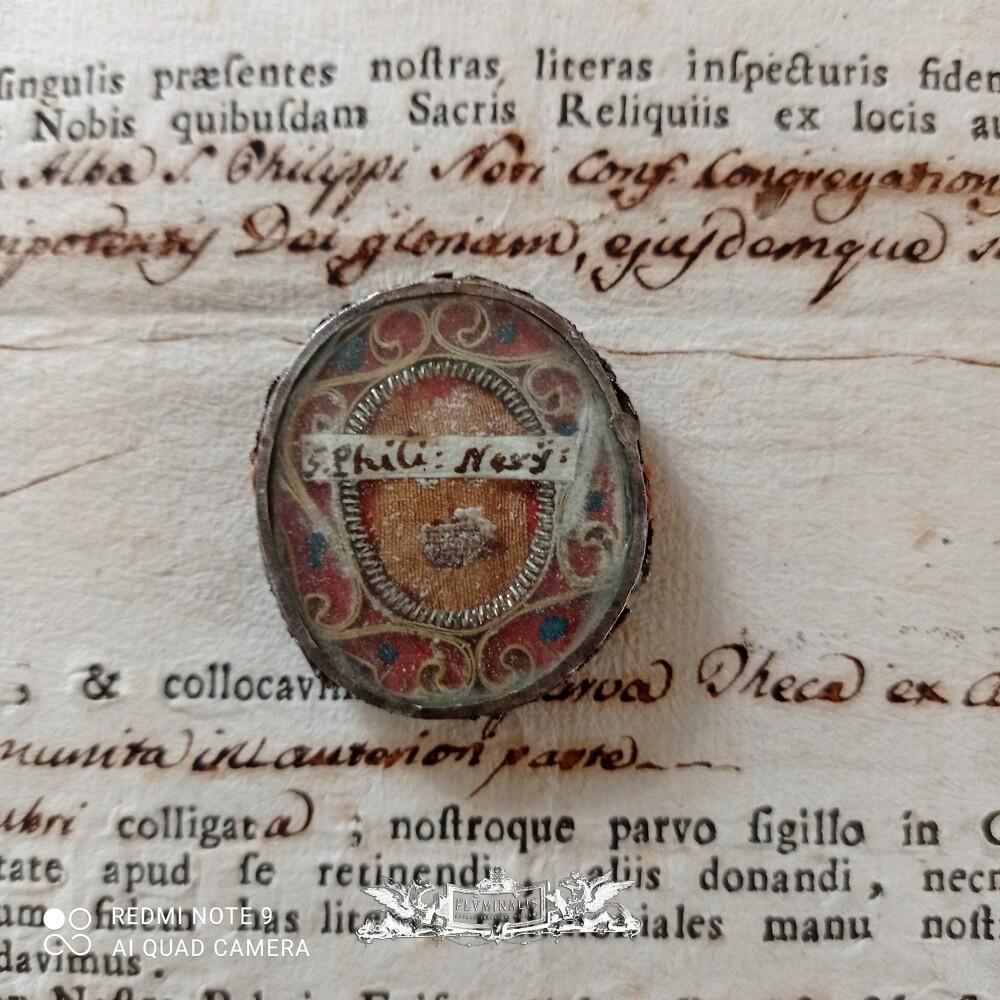 ſingulis præſentes noſtras literas inſpecturis fidem
Nobis quibuſdam Sacris Reliquiis ex locis au
Alba S. Philippi Neri Conf. Congregation
ipotentis Dei gloriam, ejusdemque s
S. Phili: Nerij:
, & collocavi parva Theca ex
munita in anteriori parte
ubri colligata ; noſtroque parvo ſigillo in C
tate apud ſe retinendi, aliis donandi, necn
um fidem has lite moniales manu noſt
davimus.
FLVMINALIS
REDMI NOTE 9
AI QUAD CAMERA